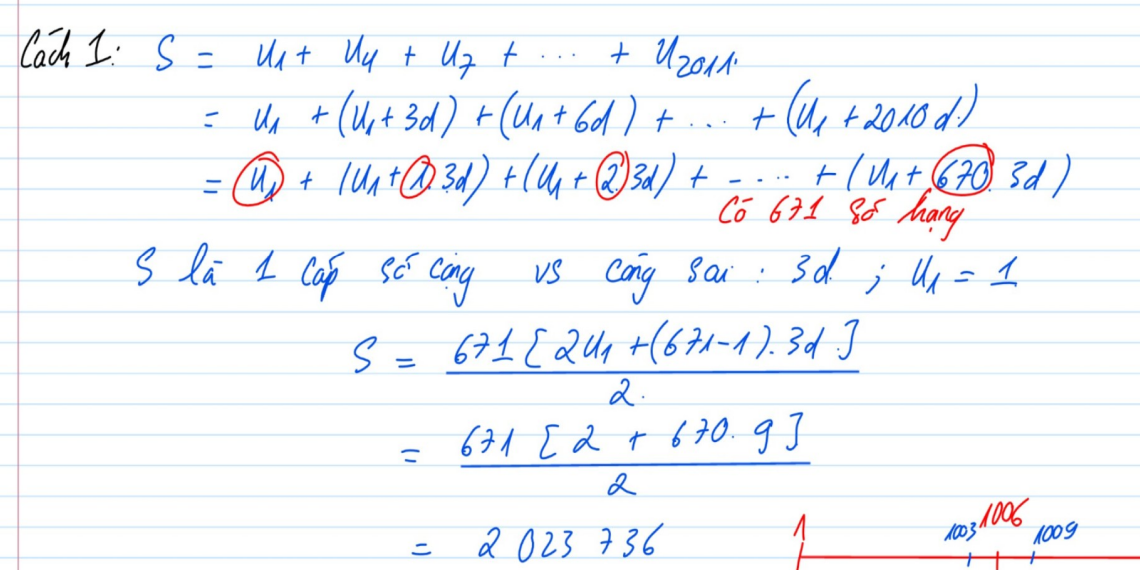 Cách 1: S = u₁ + u₄ + u₇ + ... + u₂₀₁₁.
= u₁ + (u₁ + 3d) + (u₁ + 6d) + ... + (u₁ + 2010d)
= u₁ + (u₁ + 1.3d) + (u₁ + 2.3d) + ... + (u₁ + 670.3d)
Có 671 số hạng
S là 1 cấp số cộng vs công sai : 3d ; u₁ = 1
S = 671[2u₁ + (671-1).3d.] / 2.
= 671[2 + 670.9] / 2
= 2 023 736
1 1003 1006 1009